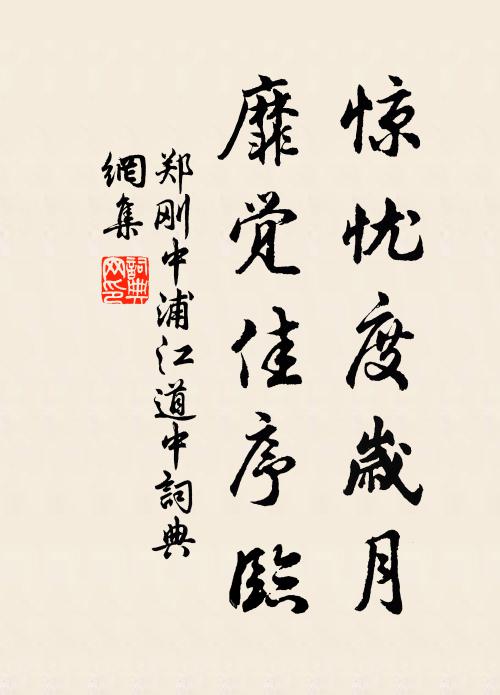 惊忧度歳月
靡觉佳序臨
郑刚中浦江道中詞典
網集
詞典网印